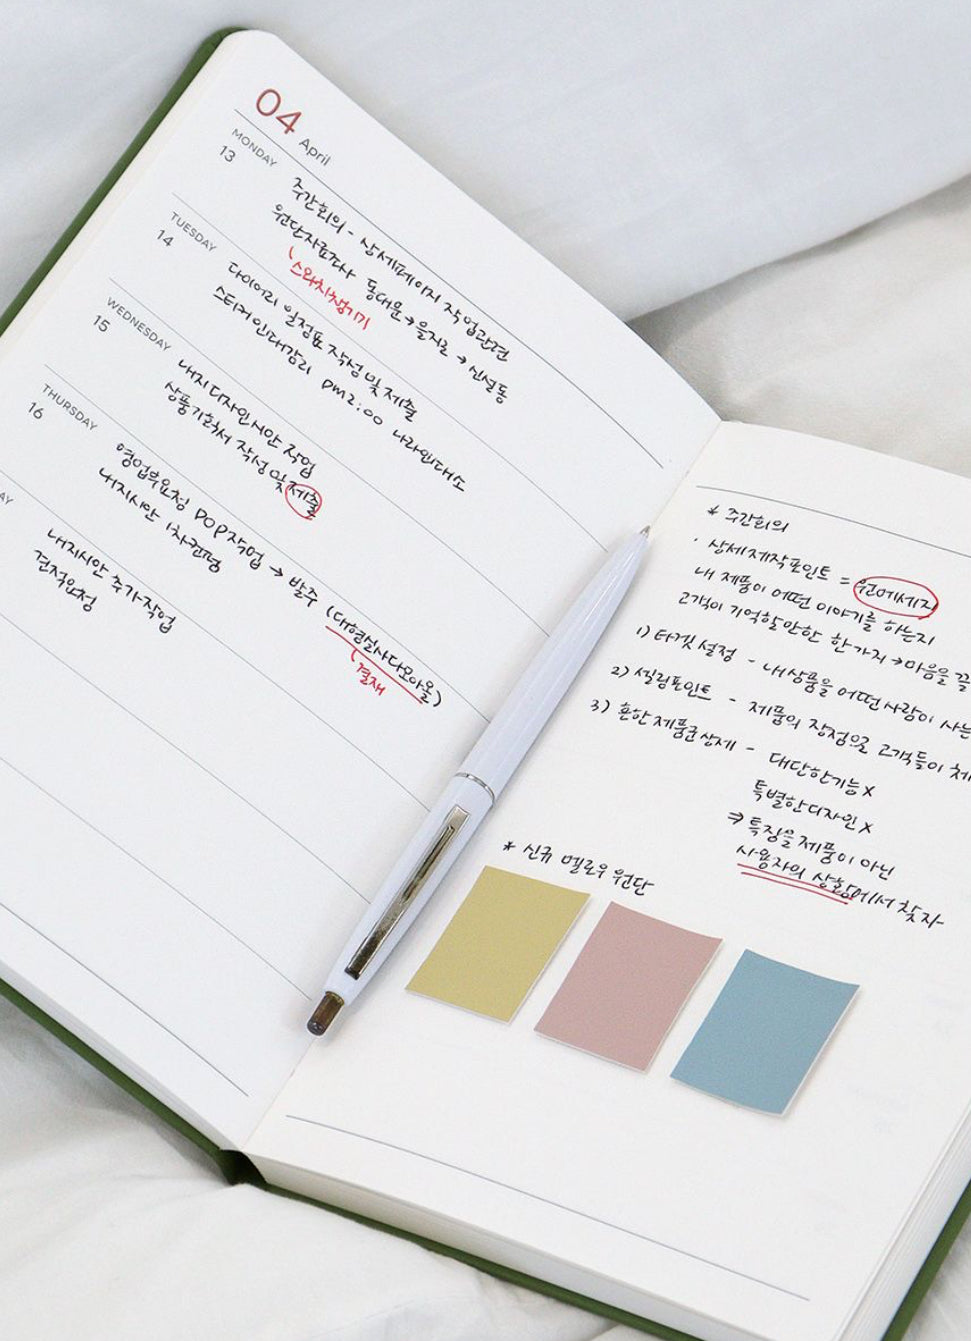 04 April
MONDAY
13
주간회의 - 상세페이지 작업관련
원단자료조사 동대문→을지로→신설동
스와치챙기기
TUESDAY
14
다이어리 일정표 작성 및 제출
스티커 인대감리 PM2:00 나라인대소
WEDNESDAY
15
내지디자인시안 작업
상품기획서 작성 및 제출
THURSDAY
16
영업부요청 POP작업 → 발주 (대형실사다모아올)
결재
내지시안 1차컨펌
AY
내지시안 추가작업
견적요청
* 주간회의
· 상세제작포인트 = 원메세지
내 제품이 어떤 이야기를 하는지
고객이 기억할만한 한가지 →마음을 끌
1) 타겟 설정 - 내상품을 어떤사람이 사는
2) 셀링포인트 - 제품의 장점으로 고객들이
3) 흔한제품군상세 - 대단한기능 X
특별한디자인 X
⇒ 특징을 제품이 아닌
사용자의 상황에서 찾자
* 신규 멜로우 원단